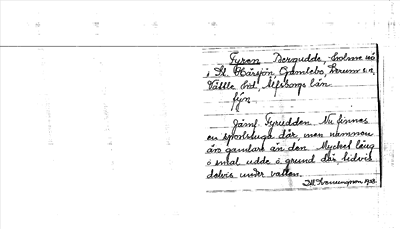 Fyren Bergudde, Holme nö
i St. Härsjön, Gamlebo, Lerum s:n,
Vättle hd, Älfsborgs län.
fyn.
Jämf. Fyrudden. Nu finnes
en sportstuga där, men namnen
äro gamlare än den. Mycket lång
o smal udde o grund där, tidvis
delvis under vatten.
1928.